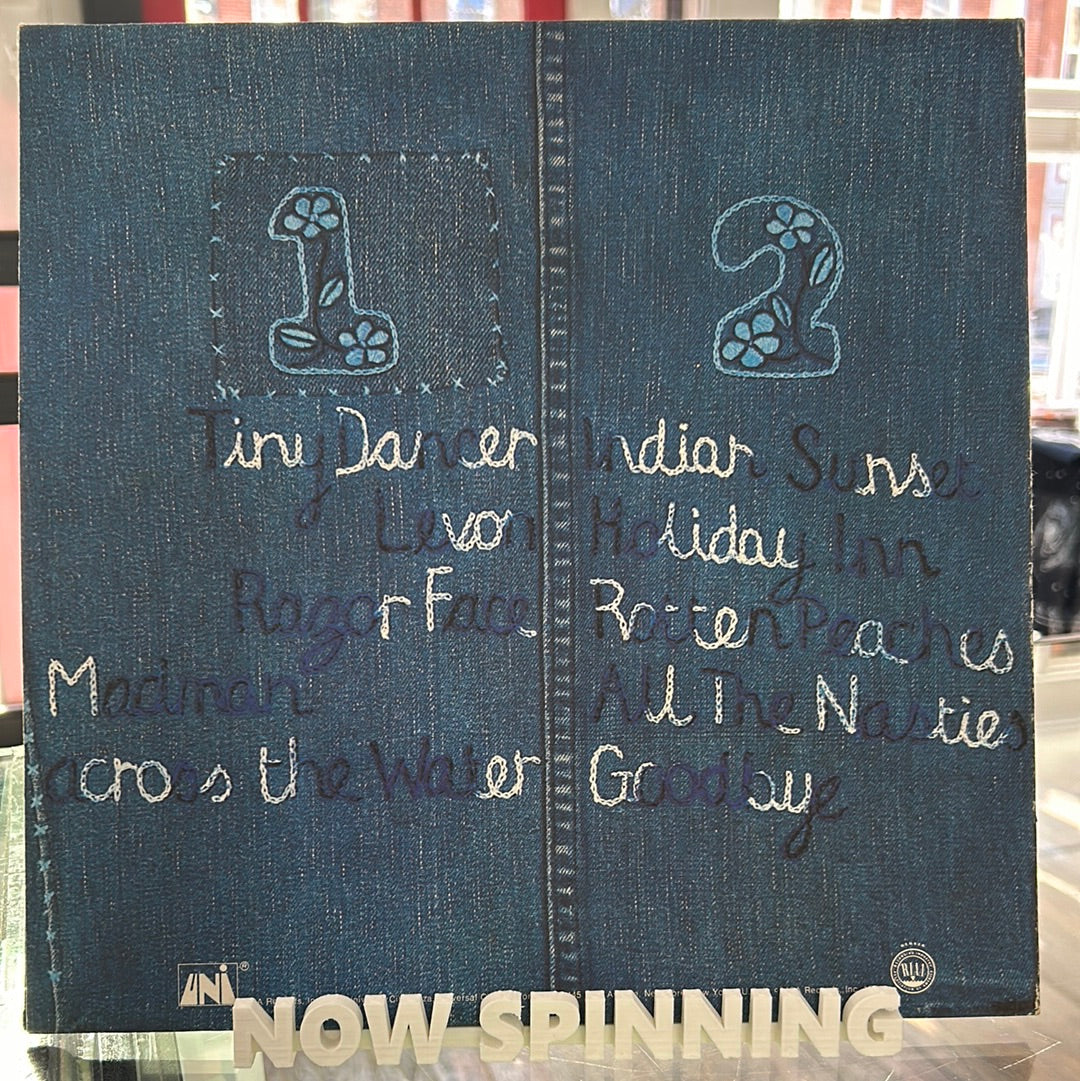 1
Tiny Dancer
Levon
Razor Face
Madman
across the Water
2
Indian Sunset
Holiday Inn
Rotten Peaches
All The Nasties
Goodbye
UNI ®
RIAA
NOW SPINNING